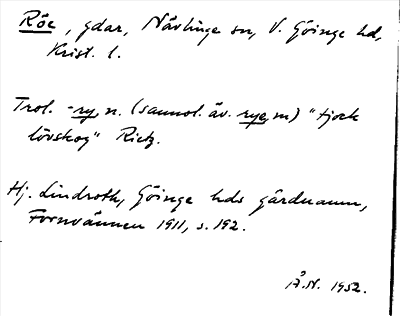 Röe, gdar, Nävlinge sn, V. Göinge hd,
Krist. l.
Trol. -ry, n. (sannol. äv. rye, m) "tjock
lövskog" Rietz.
Hj. Lindroth, Göinge hds gårdnamn,
Fornvännen 1911, s. 192.
Å.N. 1952.